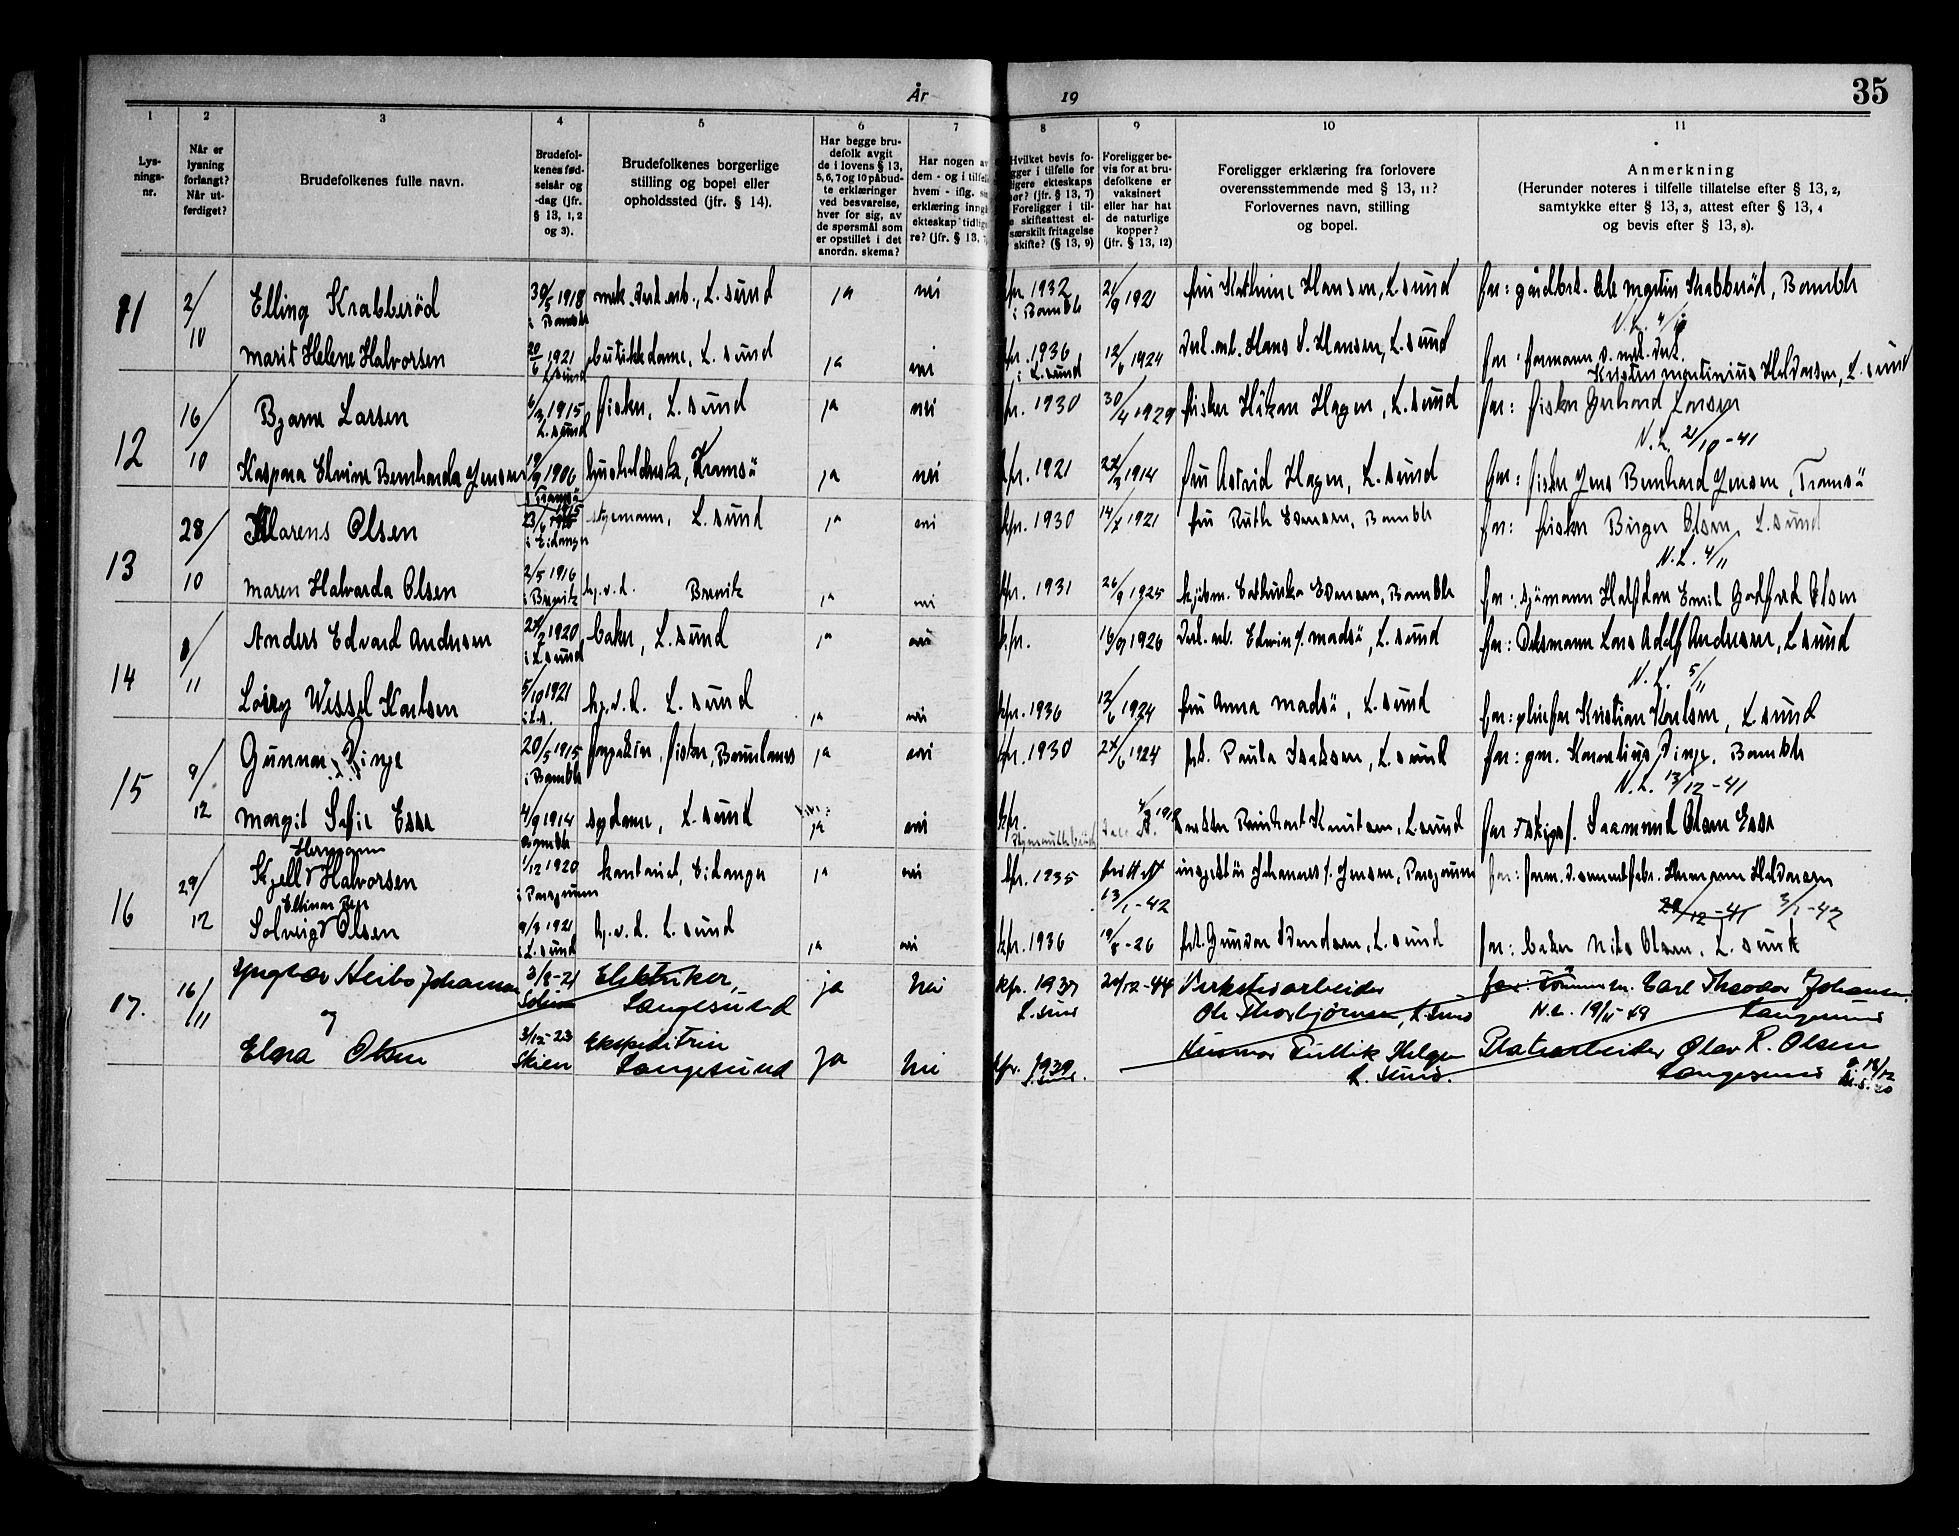 År 19
35
1 2 3 4 5 6 7 8 9 10 11
Lys-
nings-
nr.
Når er
lysning
forlangt?
Når ut-
ferdiget?
Brudefolkenes fulle navn.
Brudefol-
kenes fød-
selsår og
-dag (jfr.
§ 13, 1, 2
og 3).
Brudefolkenes borgerlige
stilling og bopel eller
opholdssted (jfr. § 14).
Har begge bru-
defolk avgit
de i lovens § 13,
5, 6, 7 og 10 påbud-
te erklæringer
ved besvarelse,
hver for sig, av
de spørsmål som
er opstillet i det
anordn. skema?
Har nogen av
dem - og i tilfelle
hvem - iflg. sin
erklæring inngå
ekteskap tidlige
re? (jfr. § 13,
Hvilket bevis fo-
gger i tilfelle for
ligere ekteskaps
hør? (jfr. § 13, 7)
Foreligger i til-
e skifteattest el-
særskilt fritagelse
skifte? (§ 13, 9)
Foreligger be-
vis for at bru-
defolkene er
vaksinert
eller har hat
de naturlige
kopper?
(jfr. § 13, 12)
Foreligger erklæring fra forlovere
overensstemmende med § 13, 11?
Forlovernes navn, stilling
og bopel.
Anmerkning
(Herunder noteres i tilfelle tillatelse efter § 13, 2,
samtykke efter § 13, 3, attest efter § 13, 4
og bevis efter § 13, 8).
11 2/10 Elling Krabberød 30/5 1918 i Bamble mek. verk. arb., L.sund ja nei kfr. 1932 i Bamble 21/9 1921 fru Kathrine Hansen, L.sund far: gårdbr. Ole Martin Krabberød, Bamble
N.L. 4/10
Marit Helene Halvorsen 20/6 1921 L.sund butikkdame, L.sund ja nei kfr. 1936 i L.sund 12/6 1924 Verk.arb. Hans S. Hansen, L.sund far: formann v. mek. verk.
Kristen Martinius Halvorsen, L.sund
12 16/10 Bjarne Larsen 6/2 1915 L.sund fisker, L.sund ja nei kfr. 1930 30/4 1929 fisker Håkon Hagen, L.sund far: fisker Gerhard Larsen
N.L. 21/10-41
Kaspara Elvine Bernharda Jensen 19/9 1906 i Tromsö husholderske, Tromsö ja nei kfr. 1921 1914 fru Astrid Hagen, L.sund far: fisker Jens Bernhard Jensen, Tromsö
13 28/10 Klarens Olsen 23/6 1915 i Eidanger styrmann, L.sund ja nei kfr. 1930 14/7 1921 fru Ruth Evensen, Bamble far: fisker Birger Olsen, L.sund
N.L. 4/11
Maren Halvarda Olsen 2/5 1916 i Brevik hj.v.d. Brevik ja nei kfr. 1931 26/9 1925 Evensen, Bamble far: sjömann Halfdan Emil Godfred Olsen
14 8/11 Anders Edvard Andersen 24/2 1920 i L.sund baker, L.sund ja nei kfr. 16/9 1926 Verk.arb. Edwin J. Madsö, L.sund far: Lars Adolf Andersen, L.sund
N.L. 5/11
Wessel Karlsen 5/10 1921 i L.s. hj.v.d. L.sund ja nei kfr. 1936 13/6 1924 fru Anna Madsö, L.sund far: Kristian Karlsen, L.sund
15 9/12 Gunnar Dinge 20/5 1915 i Bamble fisker, ja nei kfr. 1930 24/6 1924 frk. Paula Isaksen, L.sund far: gm. Kornelius Dinge, Bamble
N.L. 13/12-41
Margit Sofie Esse 4/9 1914 Bamble sydame, L.sund ja nei kfr. Reinhart Knutsen, L.sund far: Saamund Olsen Esse
16 29/12 Kjell Hermann Halvorsen 1/12 1920 i Porsgrunn kontorist, Eidanger ja nei kfr. 1935 13/1-42 Johannes J. Jensen, Porsgrunn far: form. Hermann Halvorsen
29/12-41 3/1-42
Solveig Elinor Olsen 9/3 1921 i L.sund hj.v.d. L.sund ja nei kfr. 1936 19/8-26 frk. Gunvor Svendsen, L.sund far: baker Nils Olsen, L.sund
17. 16/11 Yngvar Heibo Johansen 3/8-21 Solum Elektriker, Langesund ja Nei kfr. 1937 L.sund 20/12-44 Verkstedarbeider
Ole Thorbjörnsen, L.sund far: Tömmerm. Carl Theodor Johansen
N.L. 19/11-49 Langesund
og
Elna Olsen 3/12-23 Skien Ekspeditrise Langesund ja Nei kfr. 1939 L.sund. Husmor Helgen
L.sund. Platearbeider Olav R. Olsen
Langesund